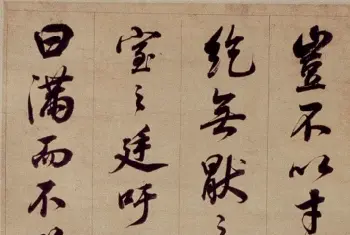 豈不以才
無厭之
室之廷吁
曰滿而不